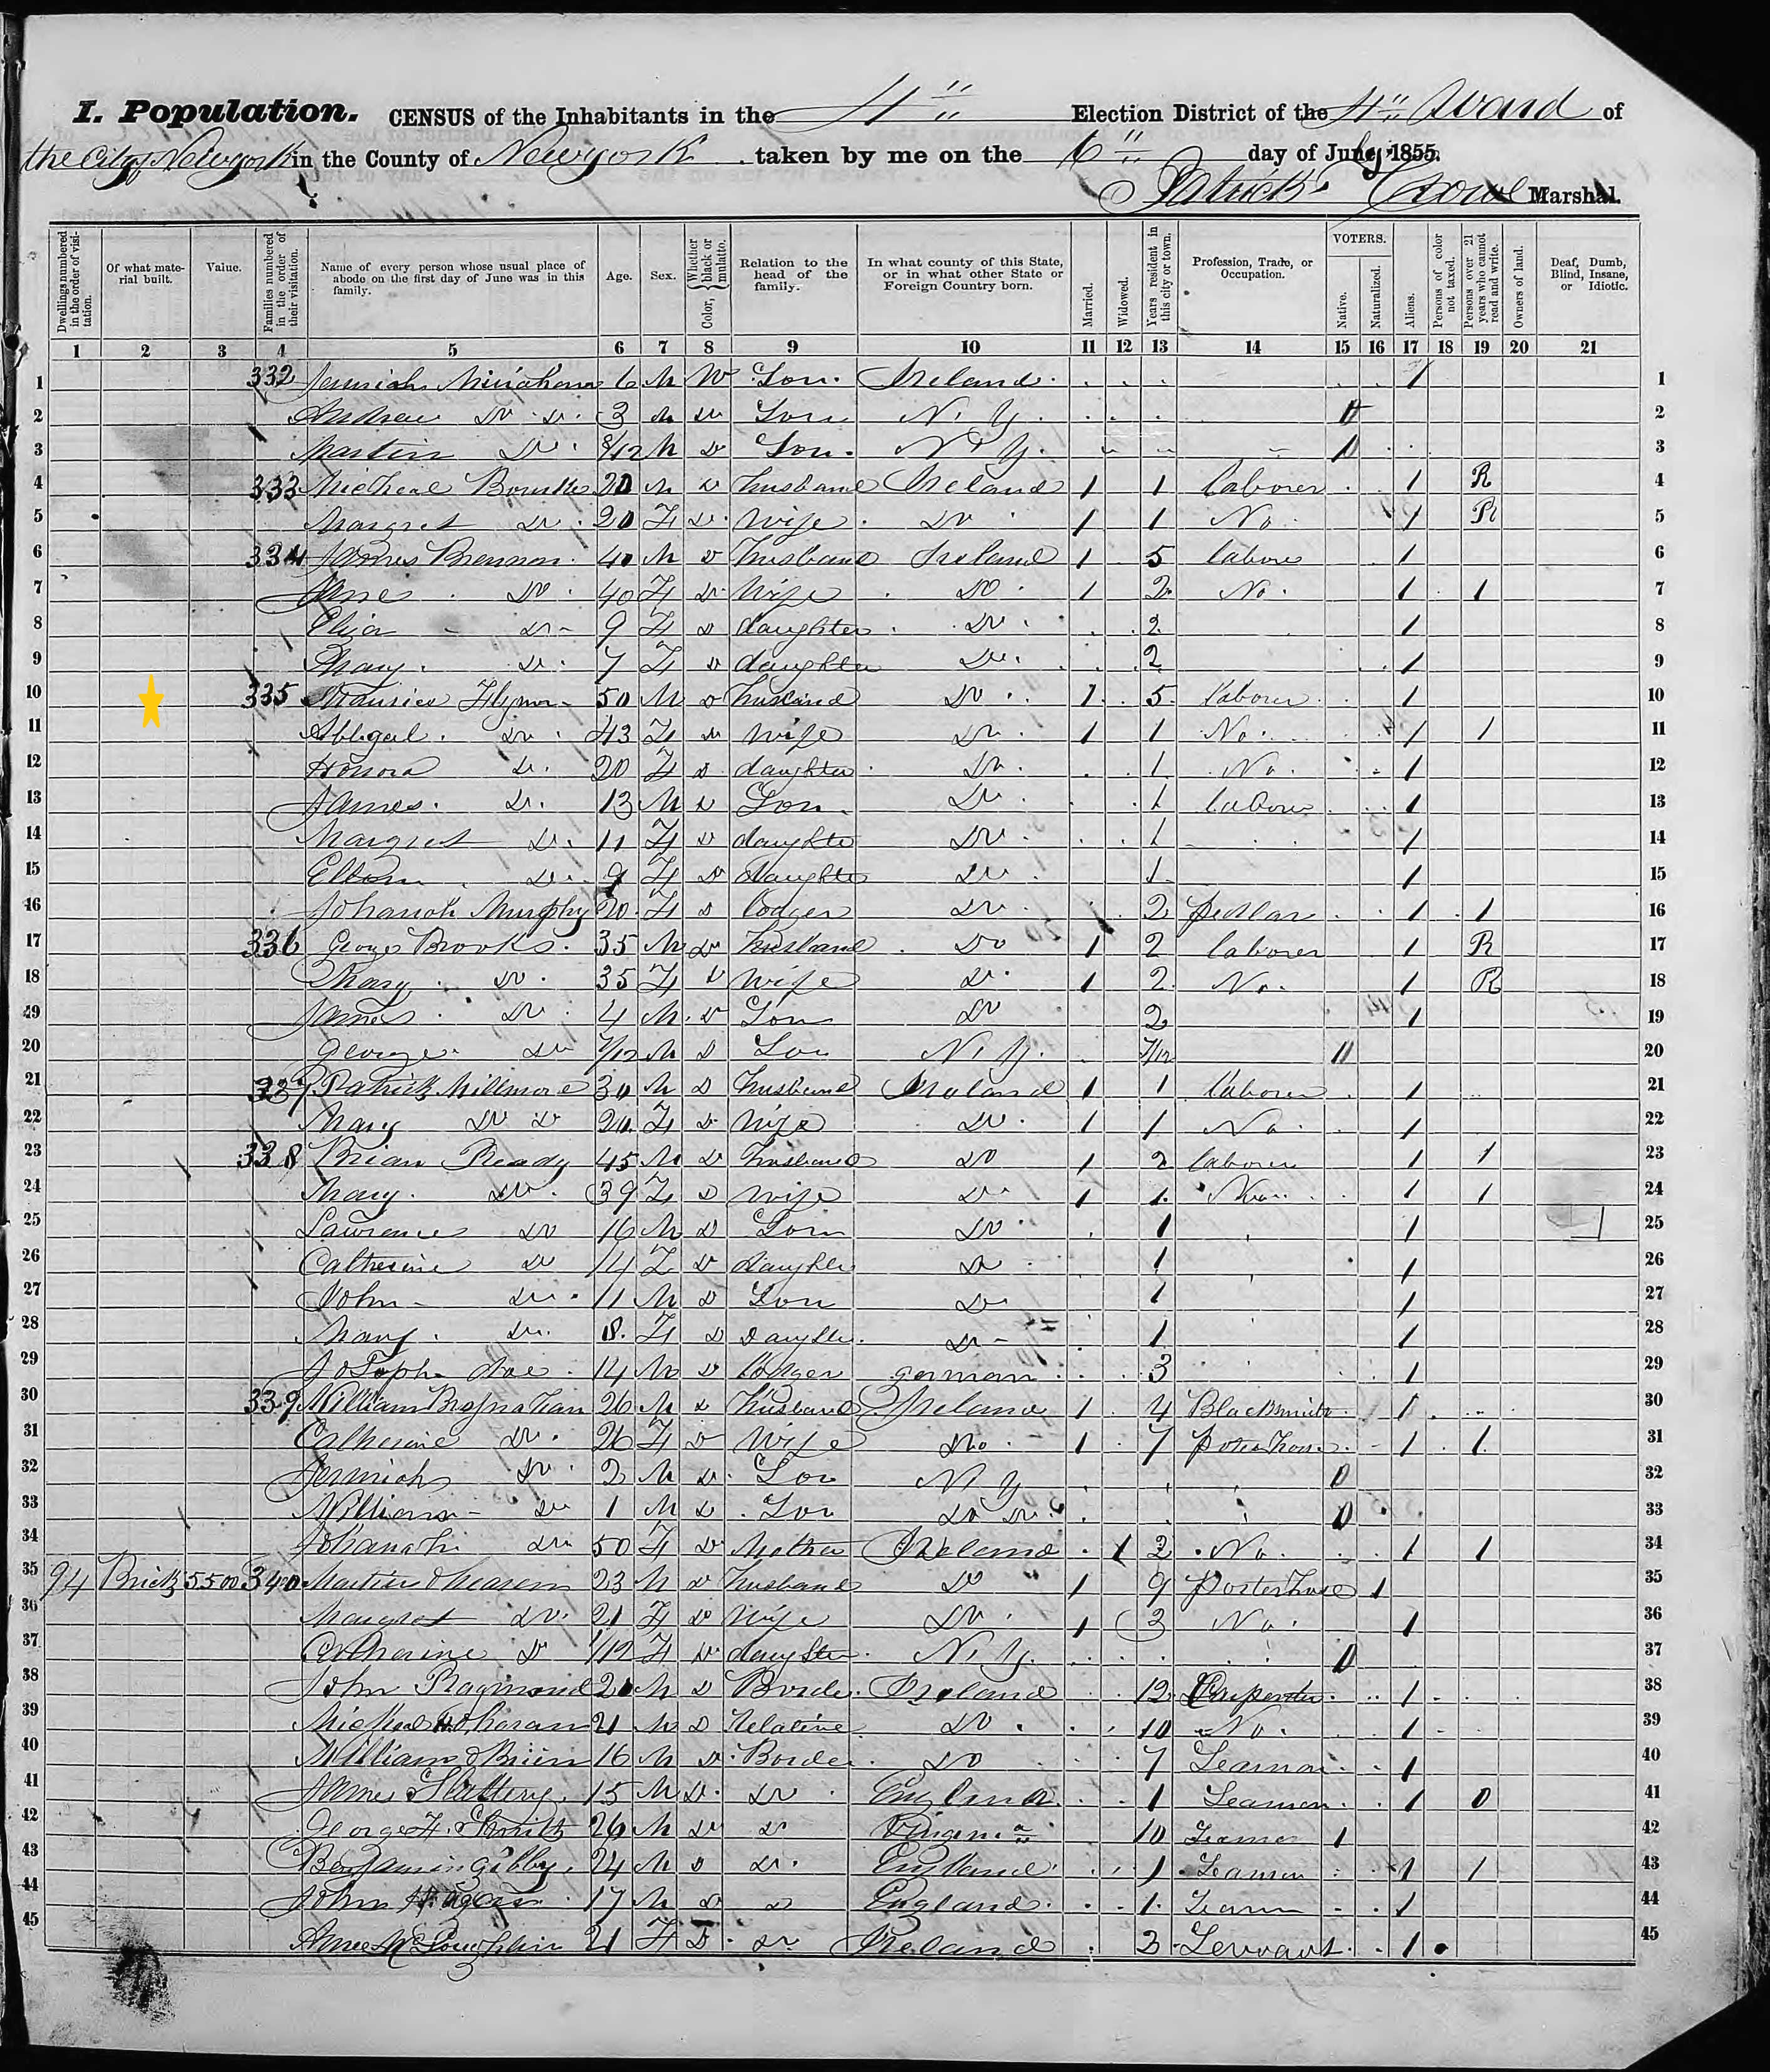 I. Population. CENSUS of the Inhabitants in the 4" Election District of the 4" Ward of
the City of Newyork in the County of Newyork taken by me on the 6" day of July 1855.
Patrick Crowe Marshal.
Dwellings numbered in the order of visitation. Of what material built. Value. Families numbered in the order of their visitation. Name of every person whose usual place of abode on the first day of June was in this family. Age. Sex. Color, Whether black or mulatto. Relation to the head of the family. In what county of this State, or in what other State or Foreign Country born. Married. Widowed. Years resident in this city or town. Profession, Trade, or Occupation. VOTERS. Native. Naturalized. Aliens. Persons of color not taxed. Persons over 21 years who cannot read and write. Owners of land. Deaf, Dumb, Blind, Insane, or Idiotic.
1 2 3 4 5 6 7 8 9 10 11 12 13 14 15 16 17 18 19 20 21
1 332 Jermiah 6 M W Son Ireland 1 1
2 Andrew Do Do 3 M Do Son N.Y. 2
3 Martin Do 8/12 M Do Son N.Y. 3
4 333 Micheal Bourke 20 M Do husband Ireland 1 1 laborer 1 R 4
5 Margret Do 20 F Do wife Do 1 1 No 1 R 5
6 334 James Brennan 40 M Do husband Ireland 1 5 labore 1 6
7 Jane Do 40 F Do wife Do 1 2 No 1 1 7
8 Eliza Do 9 F Do daughter Do 2 1 8
9 Mary Do 7 F Do daughter Do 2 1 9
10 335 Maurice Flynn 50 M Do husband Do 1 5 laborer 1 10
11 Abbigal Do 43 F Do wife Do 1 1 No 1 1 11
12 Honora Do 20 F Do daughter Do 1 No 1 12
13 James Do 13 M Do Son Do 1 labore 1 13
14 Margret Do 11 F Do daughter Do 1 1 14
15 Do 9 F Do daughter Do 1 1 15
16 Johanah Murphy 20 F Do lodger Do 2 pedlar 1 1 16
17 336 George Brooks 35 M Do husband Do 1 2 laborer 1 R 17
18 Mary Do 35 F Do wife Do 1 2 No 1 R 18
19 James Do 4 M Do Son Do 2 1 19
20 George Do 7/12 M Do Son N.Y. 7/12 20
21 337 Patrick Millmore 30 M Do husband Ireland 1 1 laborer 1 21
22 Mary Do Do 20 F Do wife Do 1 1 No 1 22
23 338 Brian Ready 45 M Do husband Do 1 2 laborer 1 1 23
24 Mary Do 39 F Do wife Do 1 1 No 1 1 24
25 Lawrence Do 16 M Do Son Do 1 1 25
26 Catherine Do 14 F Do daughter Do 1 1 26
27 John Do 11 M Do Son Do 1 1 27
28 Mary Do 8 F Do Daughter Do 1 1 28
29 Joseph 14 M Do lodger german 3 1 29
30 339 William Brosnahan 26 M Do husband Ireland 1 4 Blacksmith 1 30
31 Catherine Do 26 F Do wife Do 1 7 1 1 31
32 Jermiah Do 2 M Do Son N Y 32
33 William Do 1 M Do Son Do Do 33
34 Johanah Do 50 F Do Mother Ireland 1 2 No 1 1 34
35 94 Brick 5500 340 Martin 23 M Do husband Do 1 9 porterhouse 1 35
36 Margret Do 21 F Do wife Do 1 3 No 1 36
37 Catherine Do 1/12 F Do daughter N.Y. 37
38 John Raymond 20 M Do Borde Ireland 12 Carpenter 1 38
39 Micheal 21 M Do Relative Do 10 No 1 39
40 William O Brien 16 M Do Borde Do 7 Seaman 1 40
41 James Slattery 15 M Do Do England 1 Seaman 1 0 41
42 George F. Smith 26 M Do Do Virginia 10 Seaman 1 42
43 Benjamin Gibby 24 M Do Do England 1 Seaman 1 1 43
44 John 17 M Do Do England 1 Seaman 1 44
45 Anne McLoughlin 21 F Do Do Ireland 3 Servant 1 45